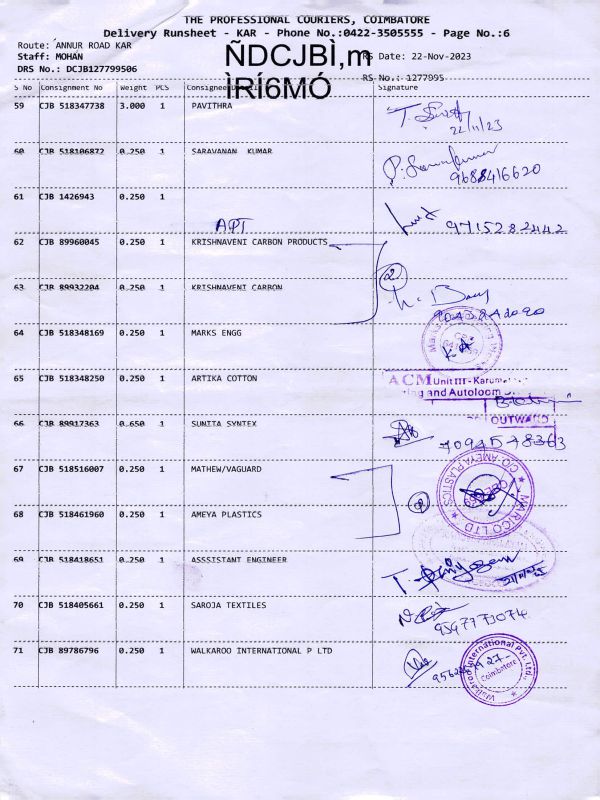 THE PROFESSIONAL COURIERS, COIMBATORE
Delivery Runsheet - KAR - Phone No.:0422-3505555 - Page No.:6
Route: ANNUR ROAD KAR
Staff: MOHAN
RS Date: 22-Nov-2023
DRS No.: DCJB127799506
ÑDCJBÌ,m
ÌRÍ6MÓ
RS No.: 1277995
S No Consignment No Weight PCS Consignee Signature
59 CJB 518347738 3.000 1 PAVITHRA
22/11/23
60 CJB 518106872 0.250 1 SARAVANAN KUMAR
9688416620
61 CJB 1426943 0.250 1
APT
9715282442
62 CJB 89960045 0.250 1 KRISHNAVENI CARBON PRODUCTS
2
63 CJB 89932204 0.250 1 KRISHNAVENI CARBON
64 CJB 518348169 0.250 1 MARKS ENGG
65 CJB 518348250 0.250 1 ARTIKA COTTON
ACM Unit III - Karum
ing and Autoloom
OUTWARD
66 CJB 89917363 0.650 1 SUNITA SYNTEX
67 CJB 518516007 0.250 1 MATHEW/VAGUARD
C/O AMEYA PLASTICS
MARICO LTD
68 CJB 518461960 0.250 1 AMEYA PLASTICS
69 CJB 518418651 0.250 1 ASSSISTANT ENGINEER
70 CJB 518405661 0.250 1 SAROJA TEXTILES
9597773074
71 CJB 89786796 0.250 1 WALKAROO INTERNATIONAL P LTD
Walkaroo International Pvt. Ltd.,
Coimbatore